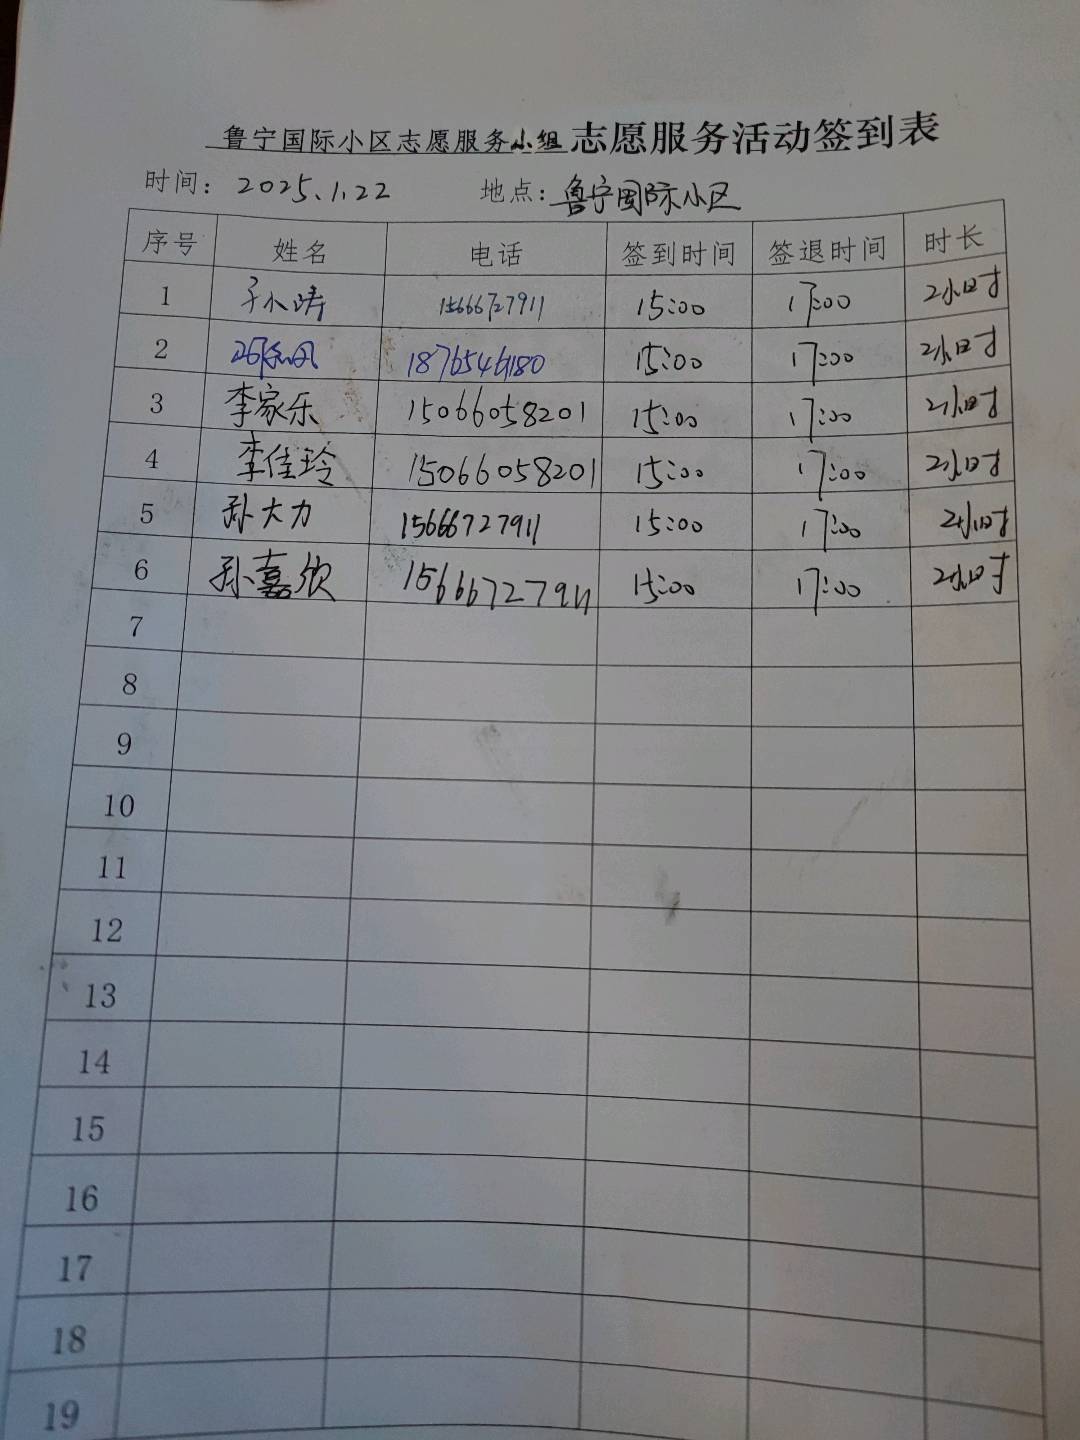 鲁宁国际小区志愿服务小组 志愿服务活动签到表
时间：2025.1.22 地点：鲁宁国际小区
序号 姓名 电话 签到时间 签退时间 时长
1 孙涛 15666727911 15:00 17:00 2小时
2 15:00 17:00 2小时
3 李家乐 15066058201 15:00 17:00 2小时
4 李佳玲 15066058201 15:00 17:00 2小时
5 孙大力 15666727911 15:00 17:00 2小时
6 孙嘉欣 15666727911 15:00 17:00 2小时
7
8
9
10
11
12
13
14
15
16
17
18
19